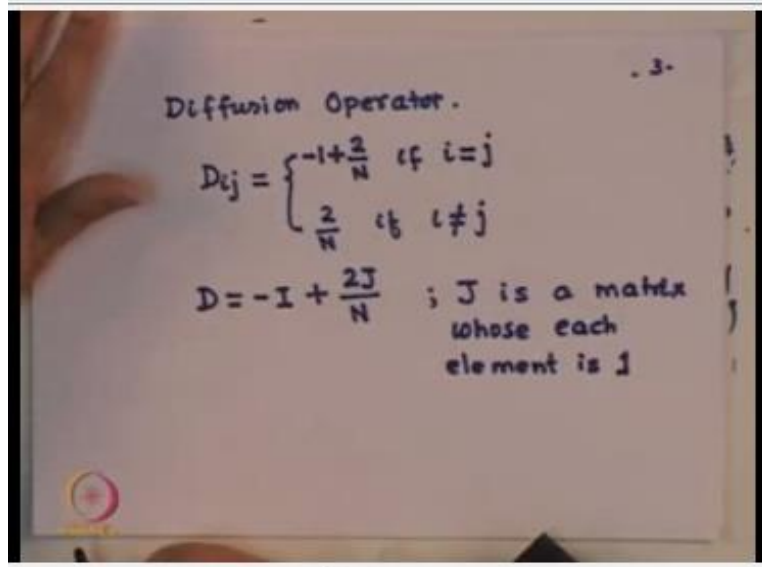 . 3.
Diffusion Operator.
Dij = { -1+2/N if i=j
2/N if i≠j
D = -I + 2J/N ; J is a matrix
whose each
element is 1